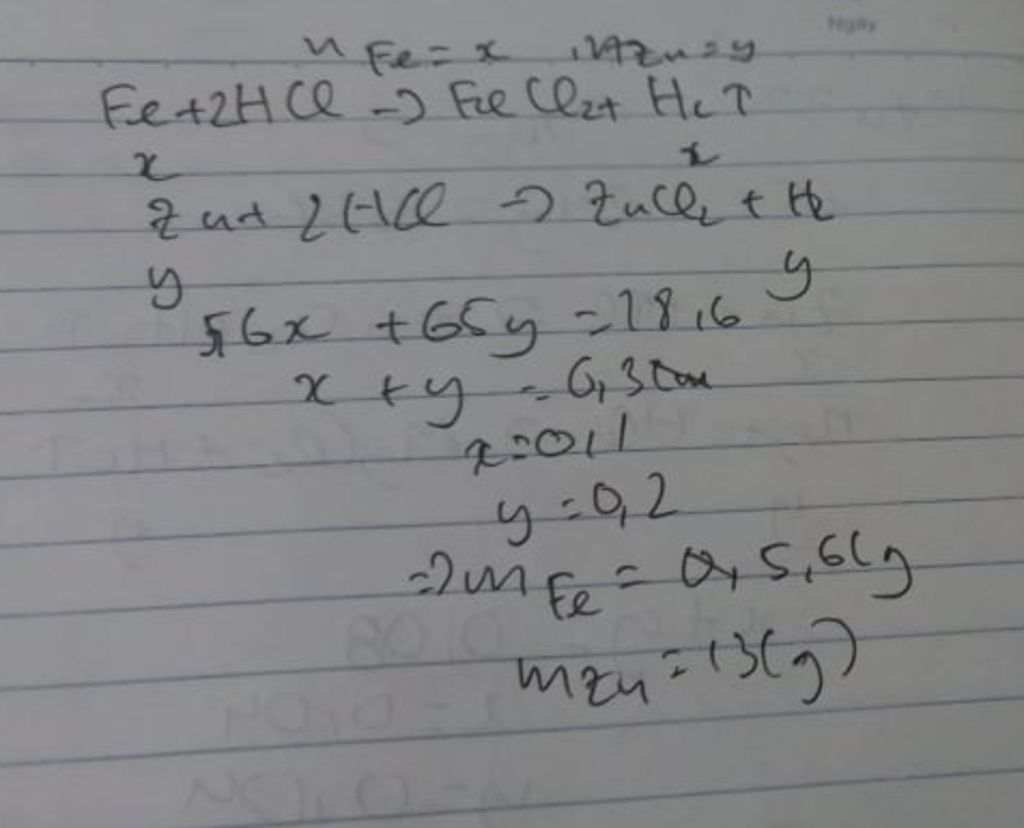 Ngày
n Fe = x , nZn = y
Fe + 2HCl -> FeCl2 + H2 ↑
x x
Zn + 2HCl -> ZnCl2 + H2
y y
56x + 65y = 18,6
x + y = 0,3
x = 0,1
y = 0,2
=> m Fe = 5,6(g
mZn = 13(g)